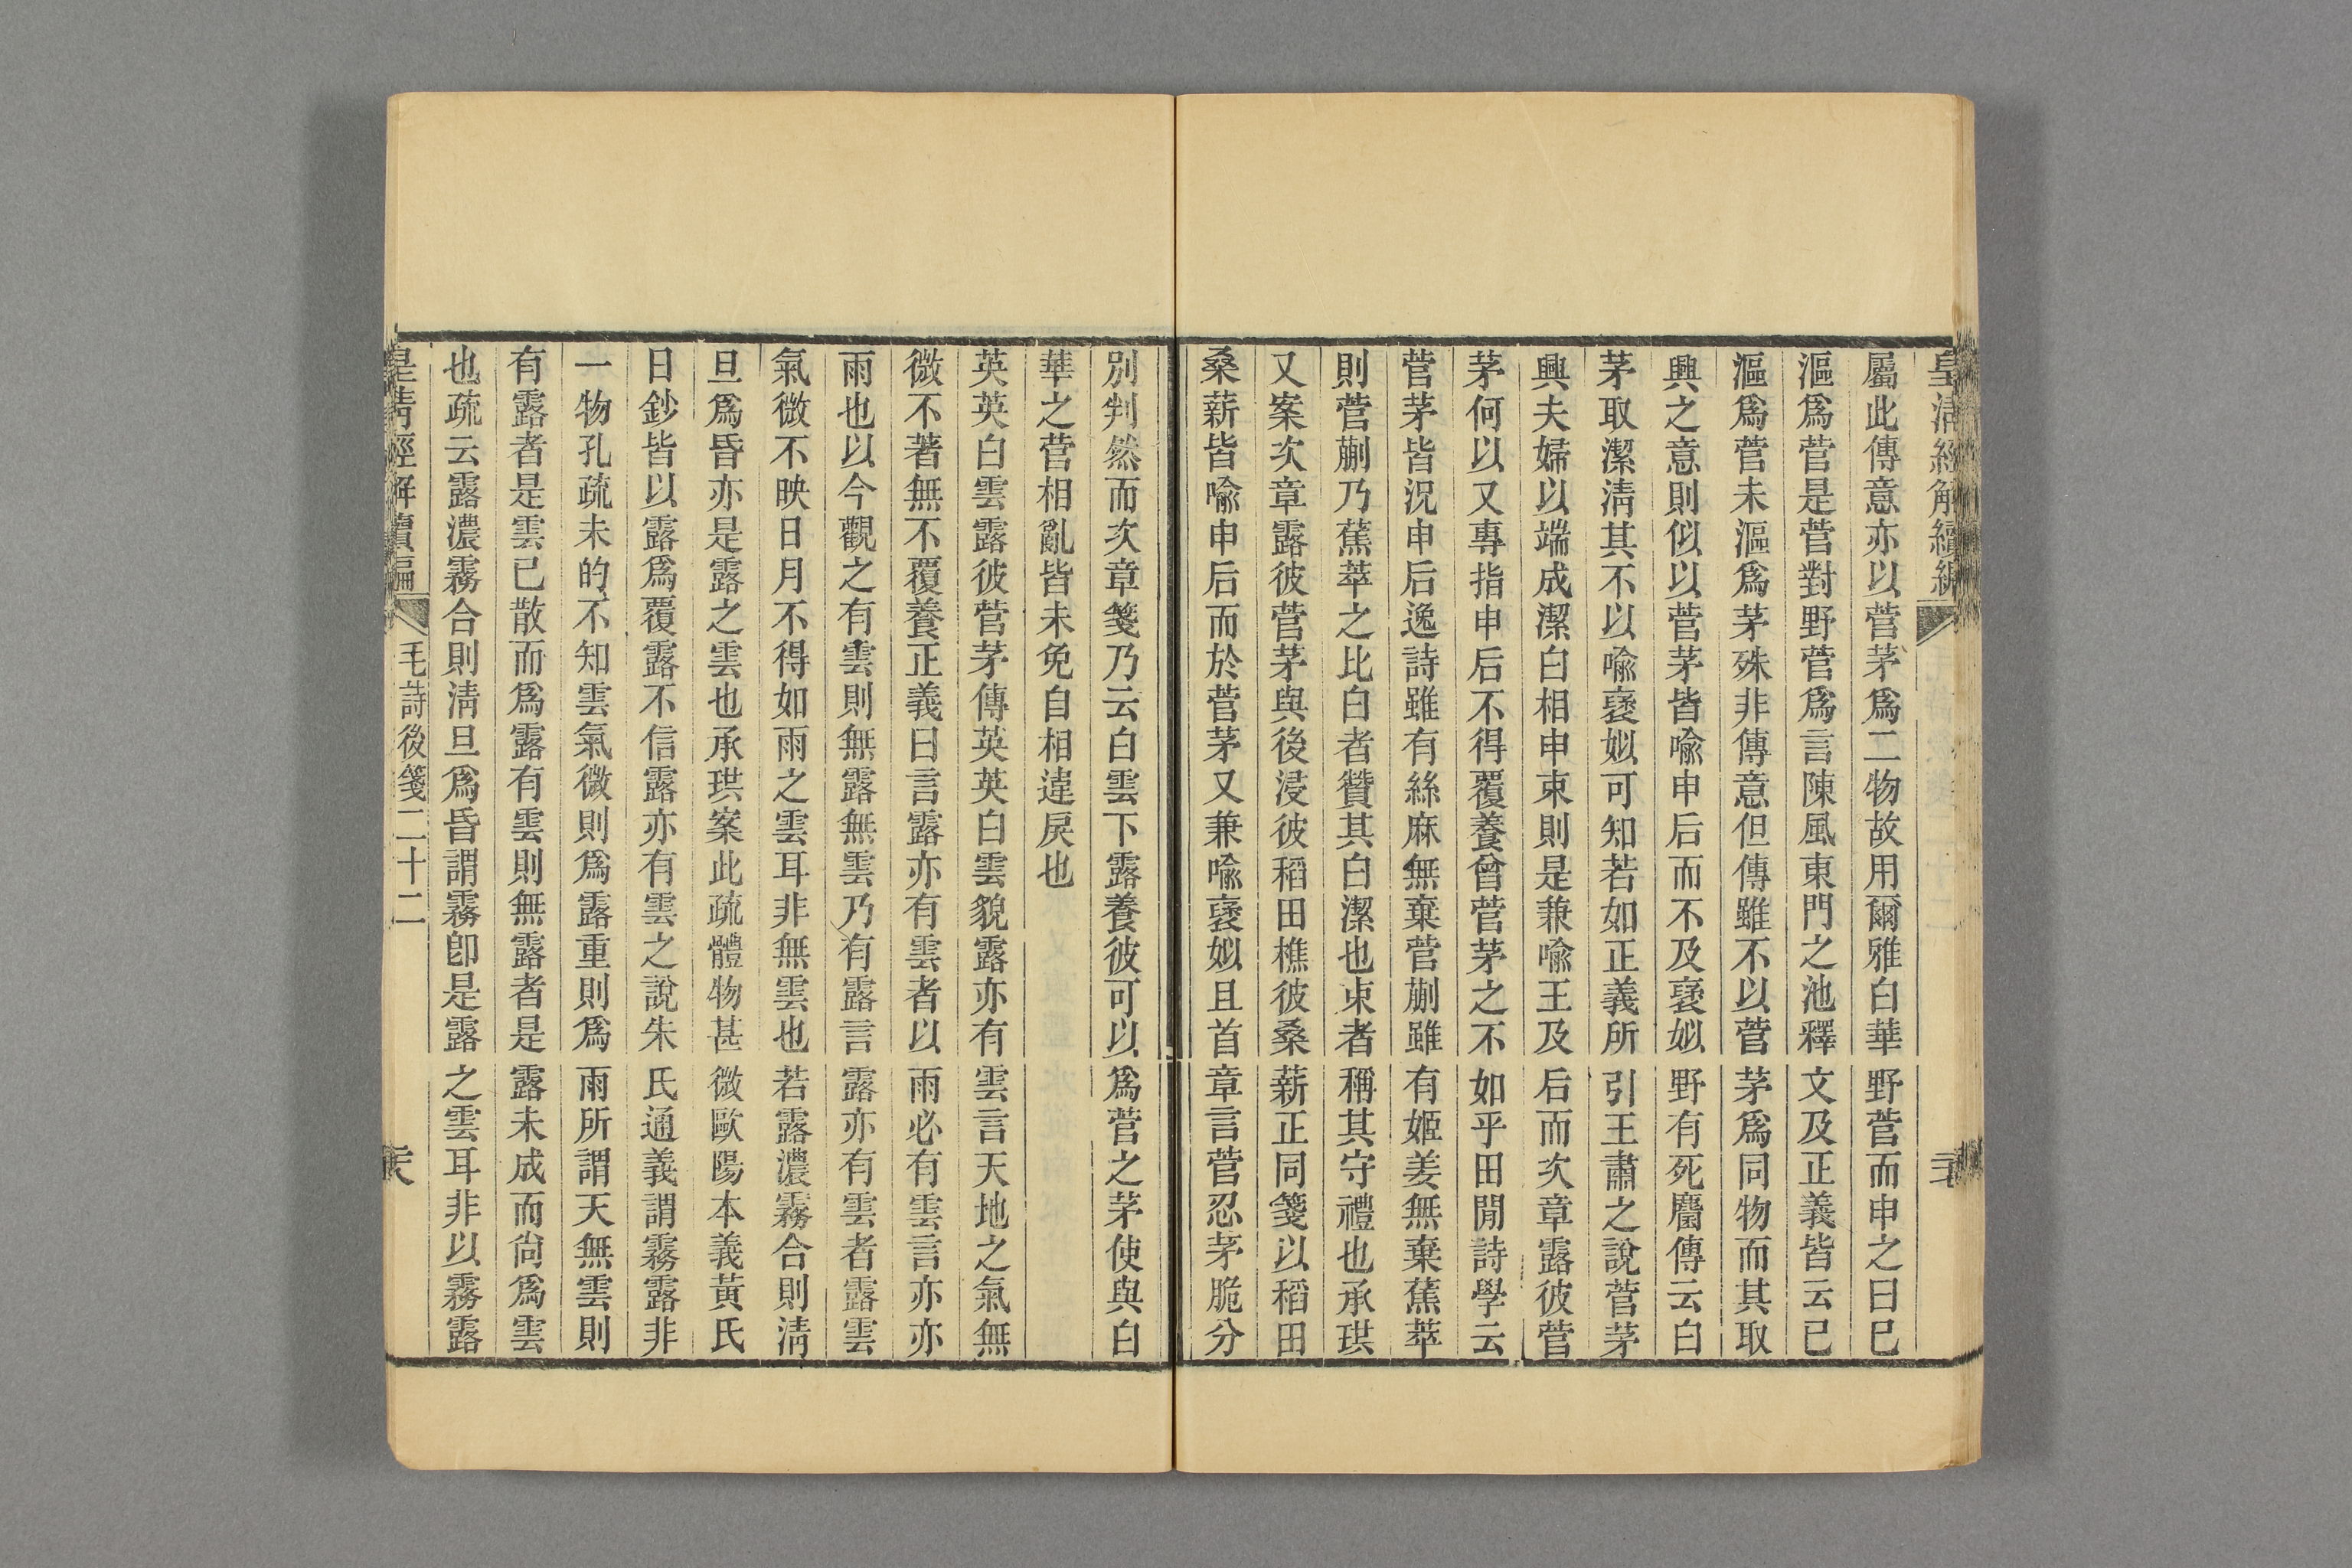 皇清經解續編
屬此傳意亦以菅茅爲二物故用爾雅白華野菅而申之曰已
漚爲菅是菅對野菅爲言陳風東門之池釋文及正義皆云已
漚爲菅未漚爲茅殊非傳意但傳雖不以菅茅爲同物而其取
興之意則似以菅茅皆喻申后而不及襃姒野有死麕傳云白
茅取潔清其不以喻襃姒可知若如正義所引王肅之說菅茅
興夫婦以端成潔白相申束則是兼喻王及后而次章露彼菅
茅何以又專指申后不得覆養曾菅茅之不如乎田閒詩學云
菅茅皆況申后逸詩雖有絲麻無棄菅蒯雖有姬姜無棄蕉萃
則菅蒯乃蕉萃之比白者贊其白潔也束者稱其守禮也承珙
又案次章露彼菅茅與後浸彼稻田樵彼桑薪正同箋以稻田
桑薪皆喻申后而於菅茅又兼喻襃姒且首章言菅忍茅脆分
別判然而次章箋乃云白雲下露養彼可以爲菅之茅使與白
華之菅相亂皆未免自相違戾也
英英白雲露彼菅茅傳英英白雲貌露亦有雲言天地之氣無
微不著無不覆養正義曰言露亦有雲者以雨必有雲言亦亦
雨也以今觀之有雲則無露無雲乃有露言露亦有雲者露雲
氣微不映日月不得如雨之雲耳非無雲也若露濃霧合則清
旦爲昏亦是露之雲也承珙案此疏體物甚微歐陽本義黃氏
日鈔皆以露爲覆露不信露亦有雲之說朱氏通義謂霧露非
一物孔疏未的不知雲氣微則爲露重則爲雨所謂天無雲則
有露者是雲已散而爲露有雲則無露者是露未成而尙爲雲
也疏云露濃霧合則清旦爲昏謂霧卽是露之雲耳非以霧露
皇清經解續編 毛詩後箋二十二